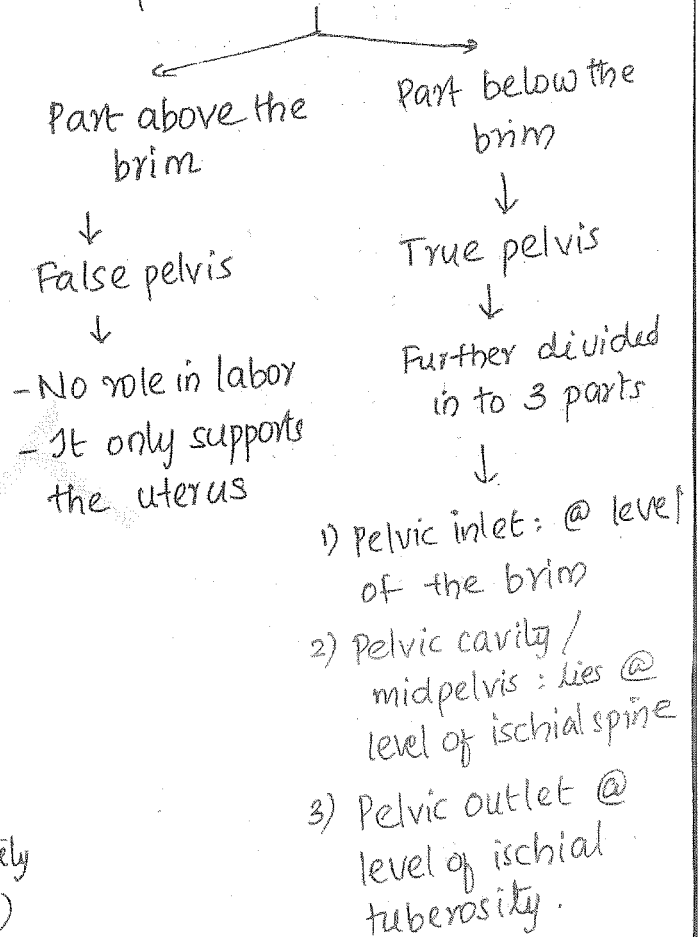 Part above the
brim
↓
False pelvis
↓
- No role in labor
- It only supports
the uterus
Part below the
brim
↓
True pelvis
↓
Further divided
in to 3 parts
↓
1) Pelvic inlet: @ level
of the brim
2) Pelvic cavity /
midpelvis : lies @
level of ischial spine
3) Pelvic outlet @
level of ischial
tuberosity.
ely
)